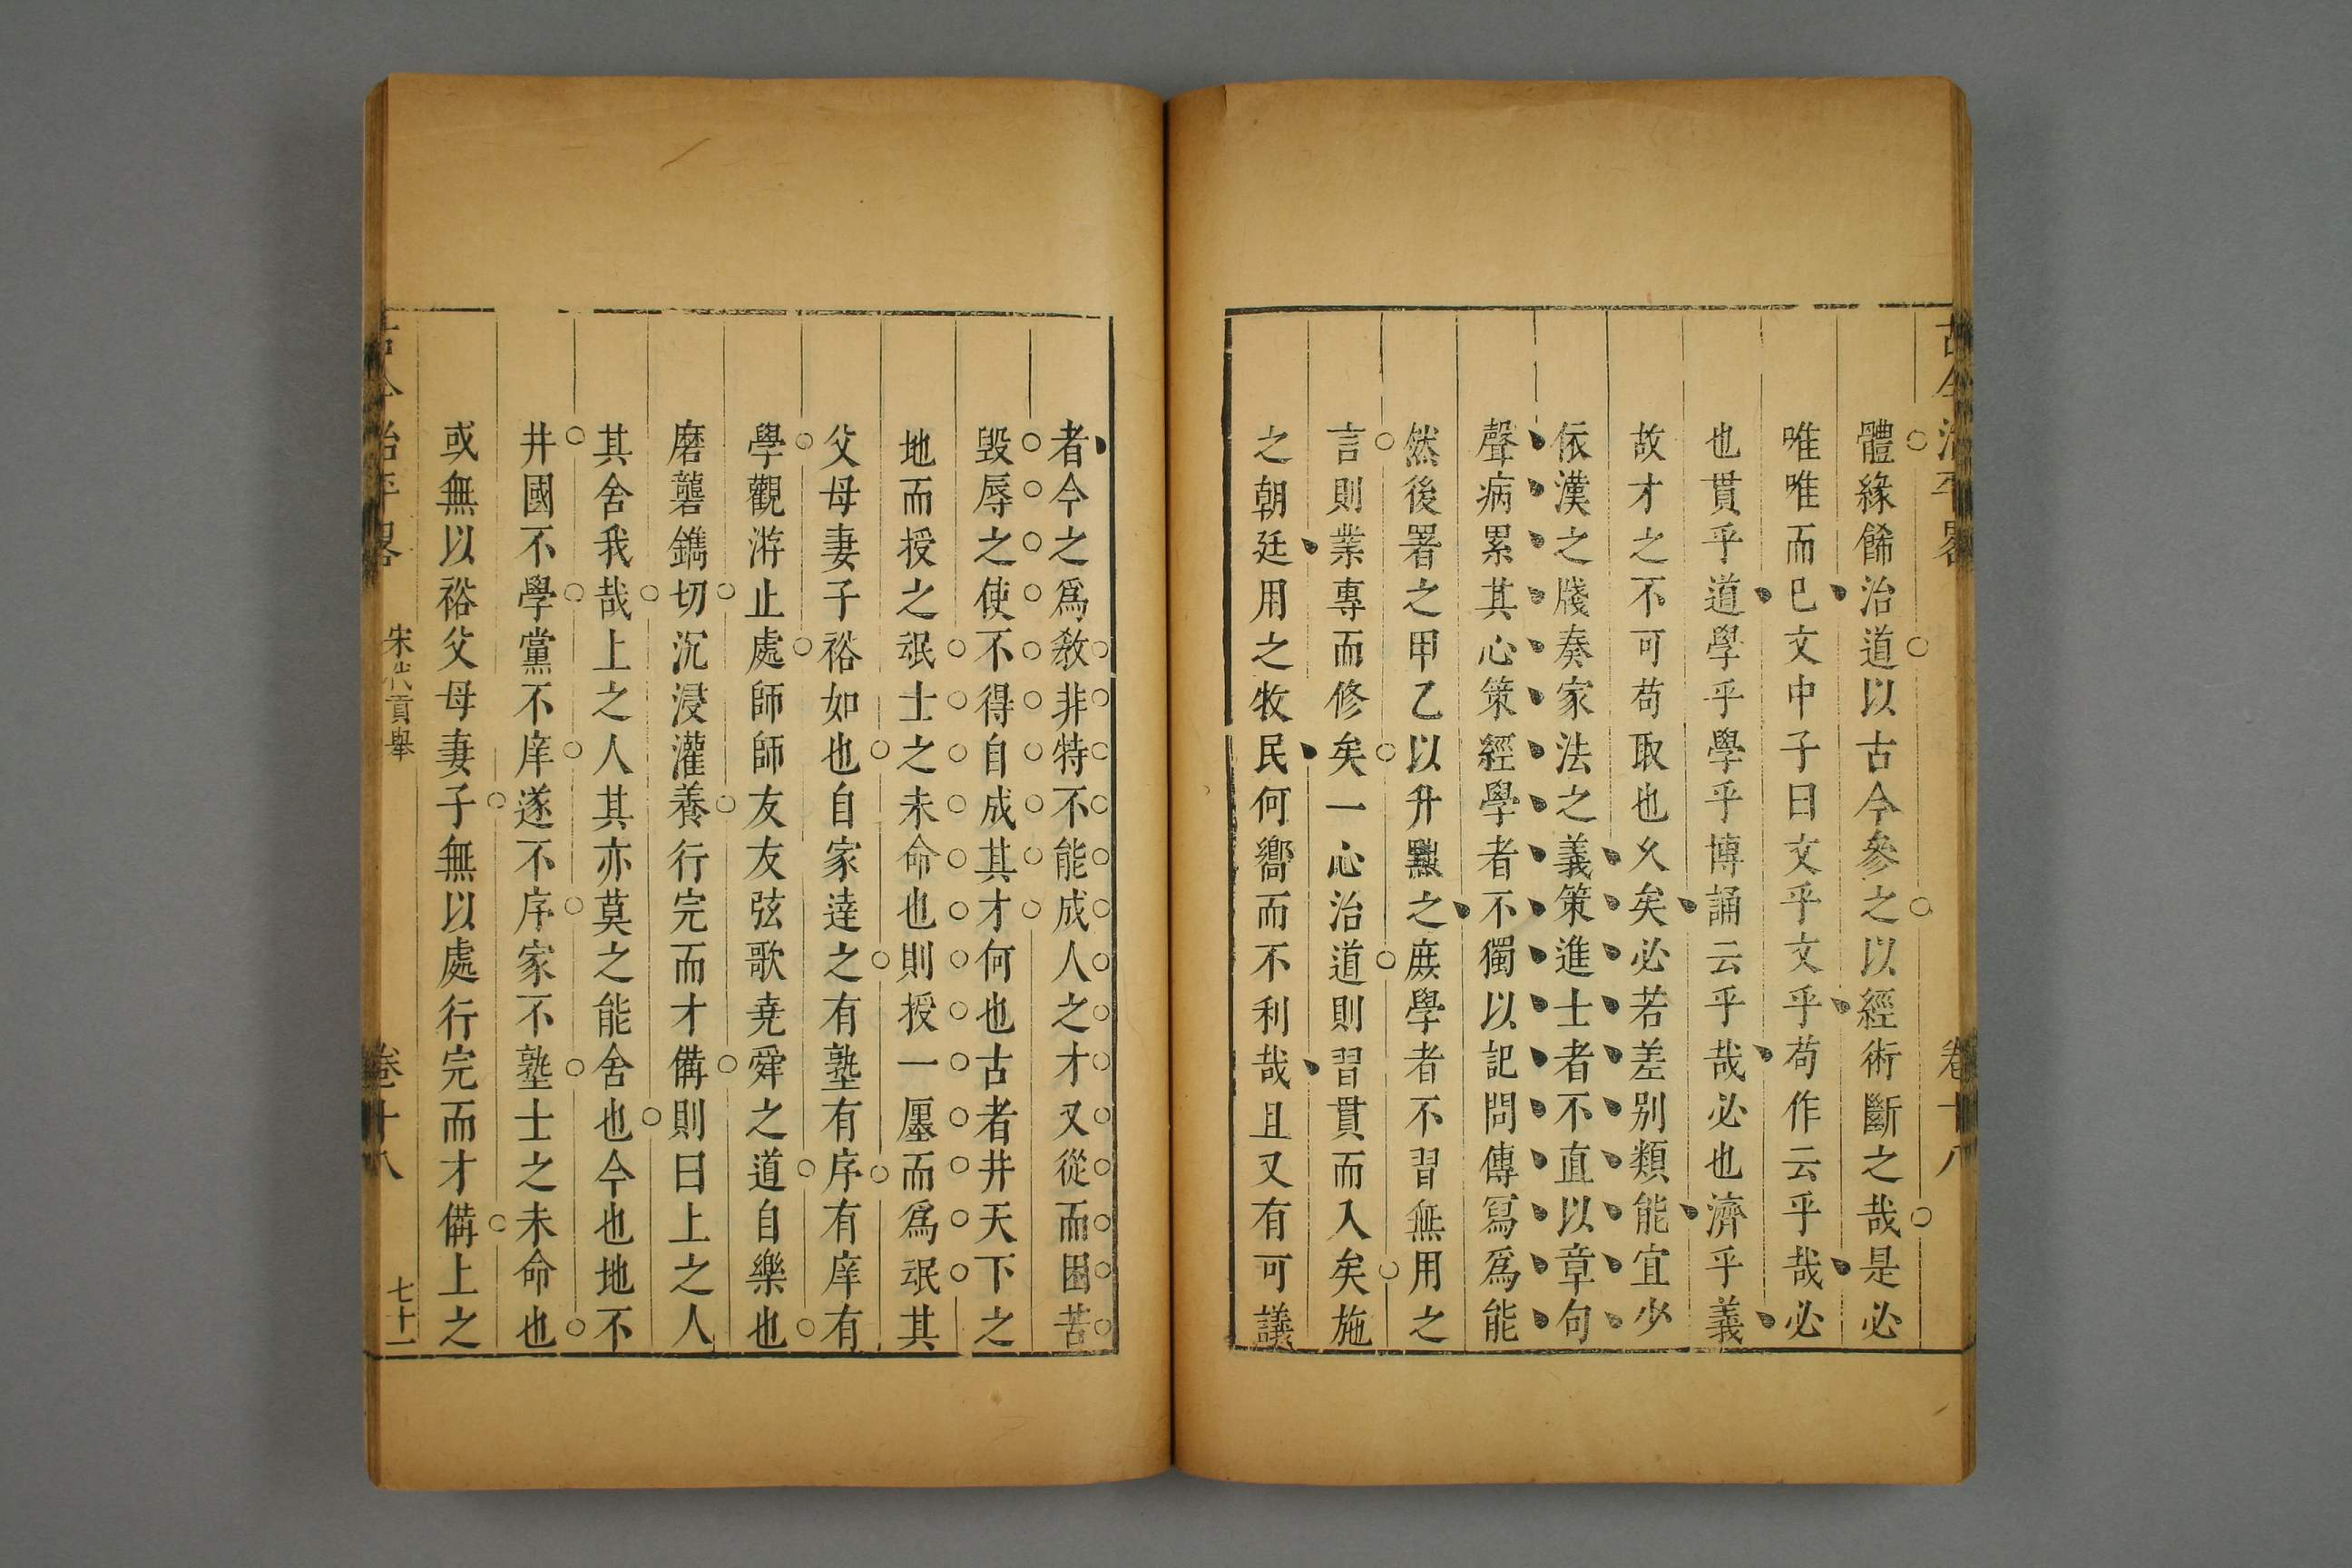 古今治平畧 卷十八
體緣餙治道以古今參之以經術斷之哉是必
唯唯而已文中子曰文乎文乎苟作云乎哉必
也貫乎道學乎學乎博誦云乎哉必也濟乎義
故才之不可苟取也久矣必若差別類能宜少
依漢之牋奏家法之義策進士者不直以章句
聲病累其心策經學者不獨以記問傳寫爲能
然後署之甲乙以升黜之庻學者不習無用之
言則業專而修矣一心治道則習貫而入矣施
之朝廷用之牧民何嚮而不利哉且又有可議
者今之爲敎非特不能成人之才又從而困苦
毀辱之使不得自成其才何也古者井天下之
地而授之氓士之未命也則授一廛而爲氓其
父母妻子裕如也自家達之有塾有序有庠有
學觀游止處師師友友弦歌堯舜之道自樂也
磨礲鐫切沉浸灌養行完而才備則曰上之人
其舍我哉上之人其亦莫之能舍也今也地不
井國不學黨不庠遂不序家不塾士之未命也
或無以裕父母妻子無以處行完而才備上之
古今治平畧 宋代貢舉 卷十八 七十一